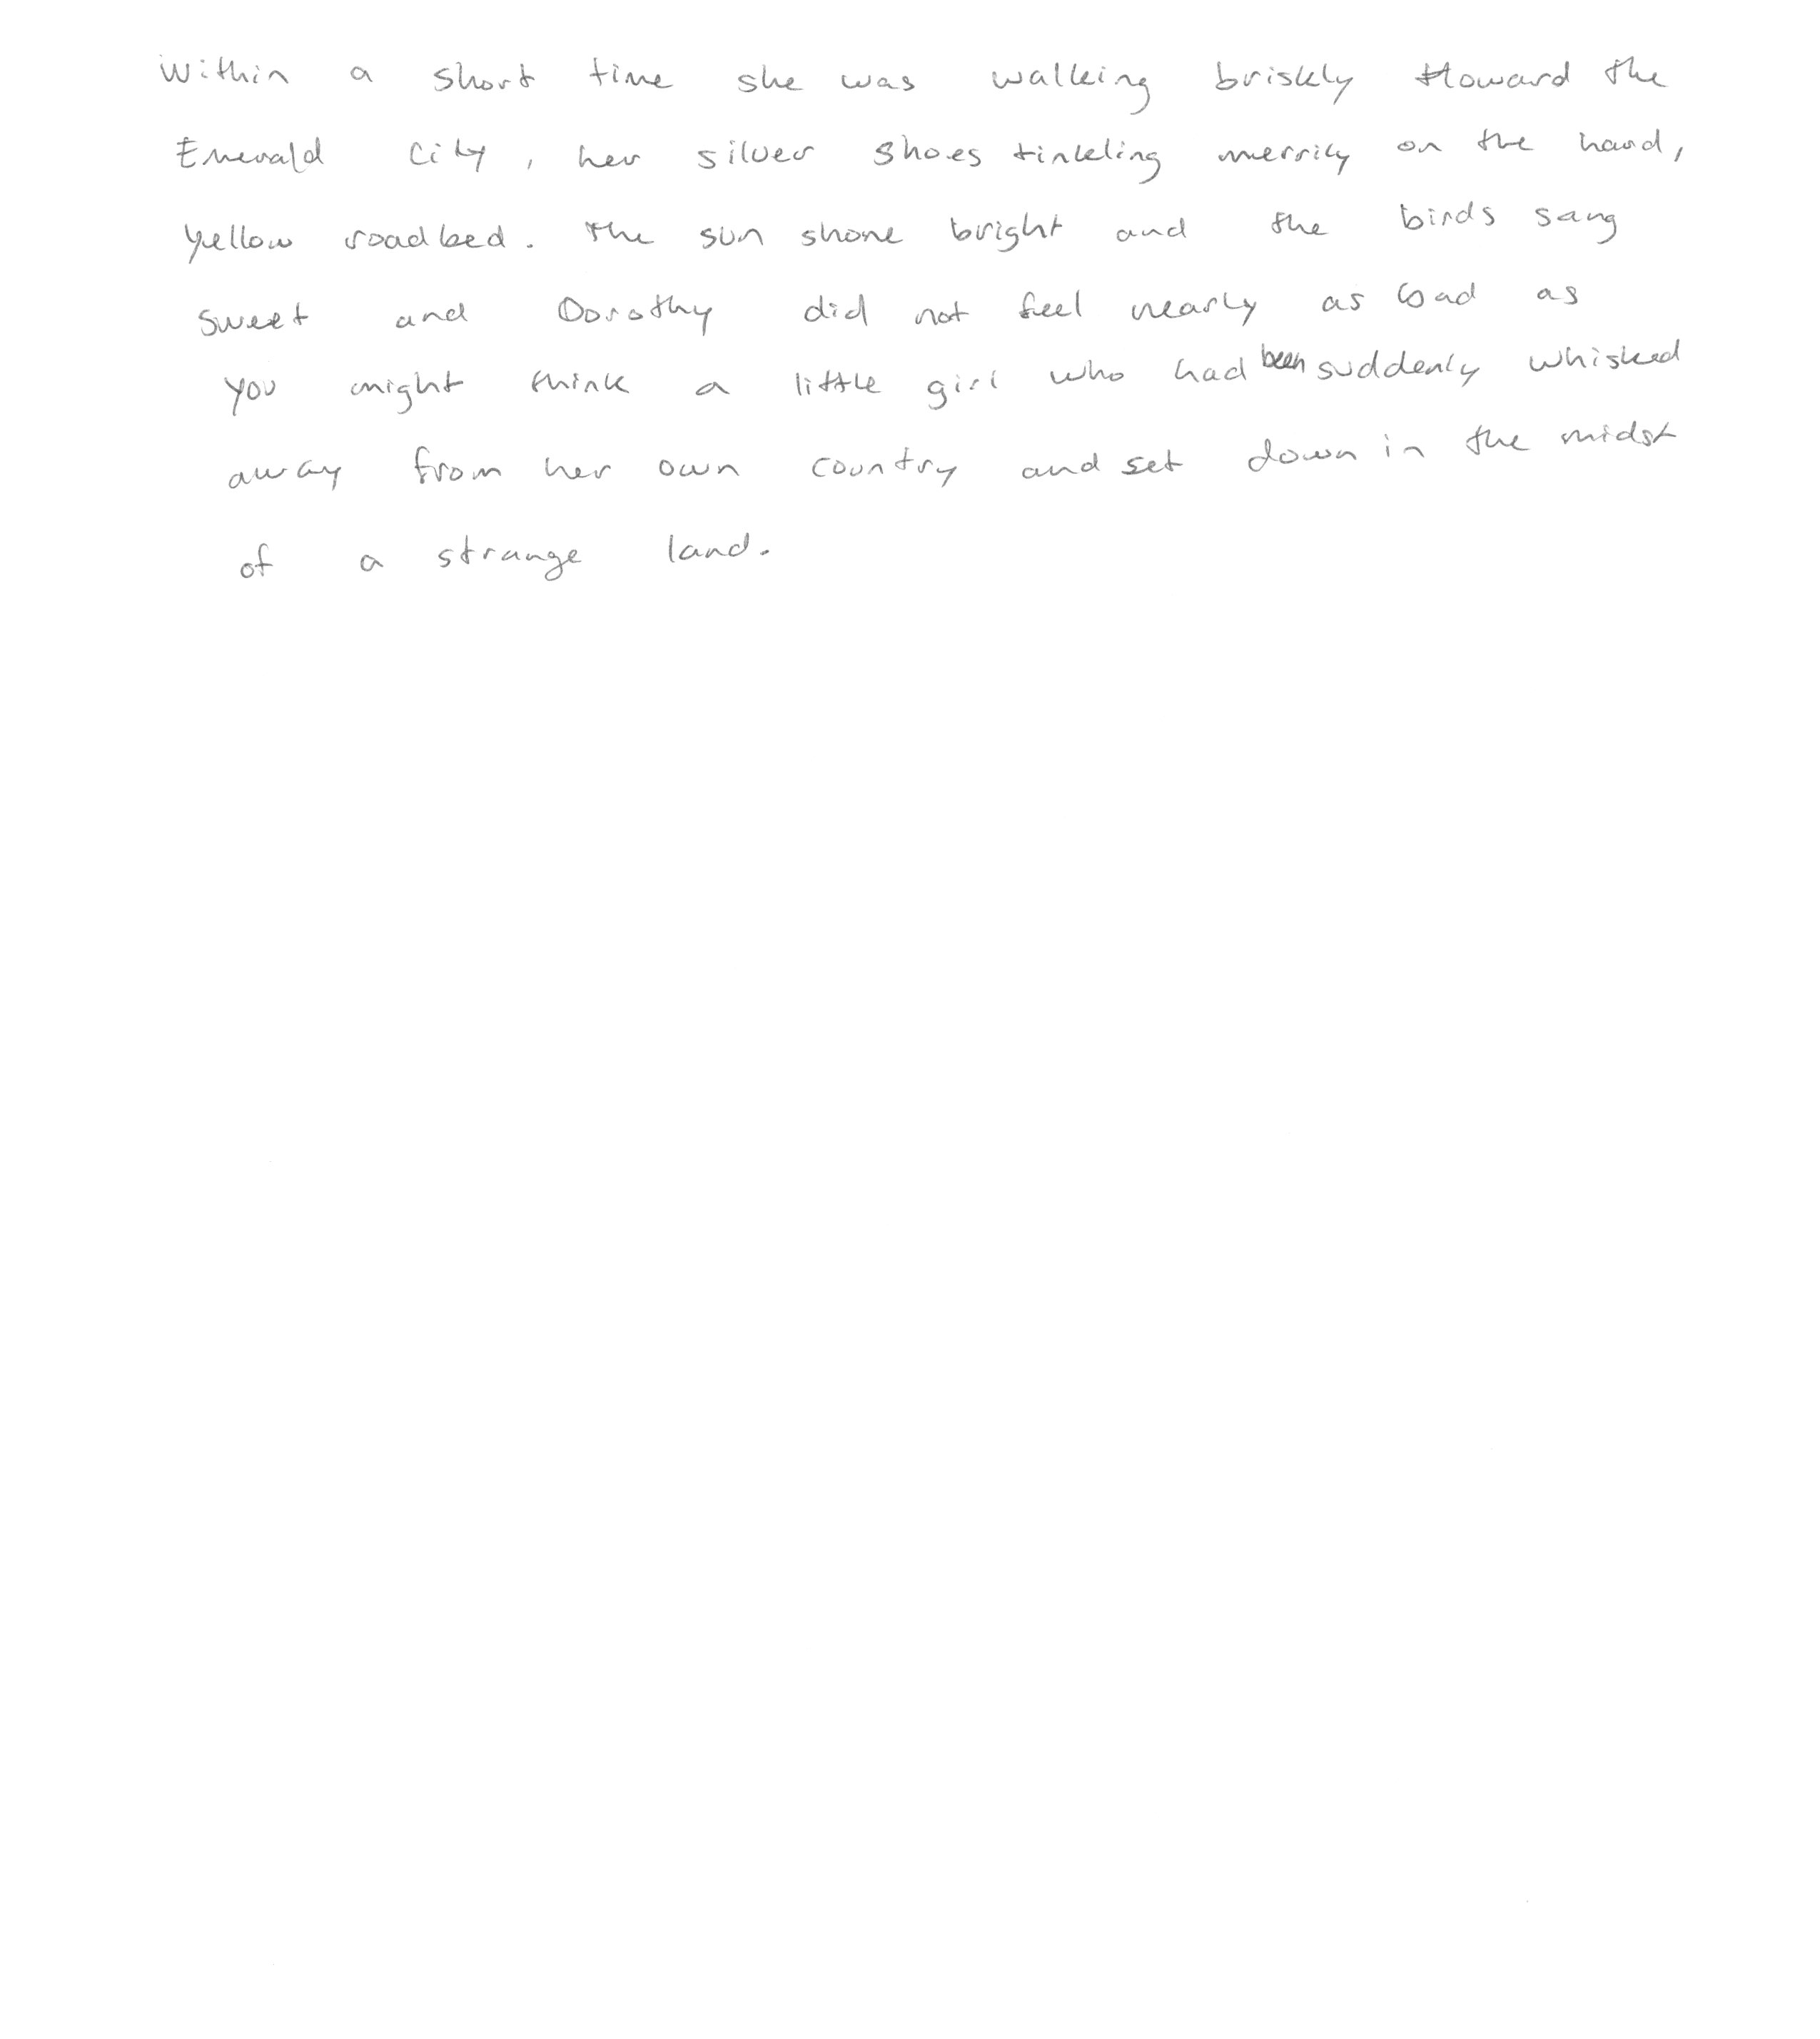 Within a short time she was walking briskly toward the
Emerald City, her silver shoes tinkling merrily on the hard,
yellow roadbed. The sun shone bright and the birds sang
sweet and Dorothy did not feel nearly as bad as
you might think a little girl who had been suddenly whisked
away from her own country and set down in the midst
of a strange land.